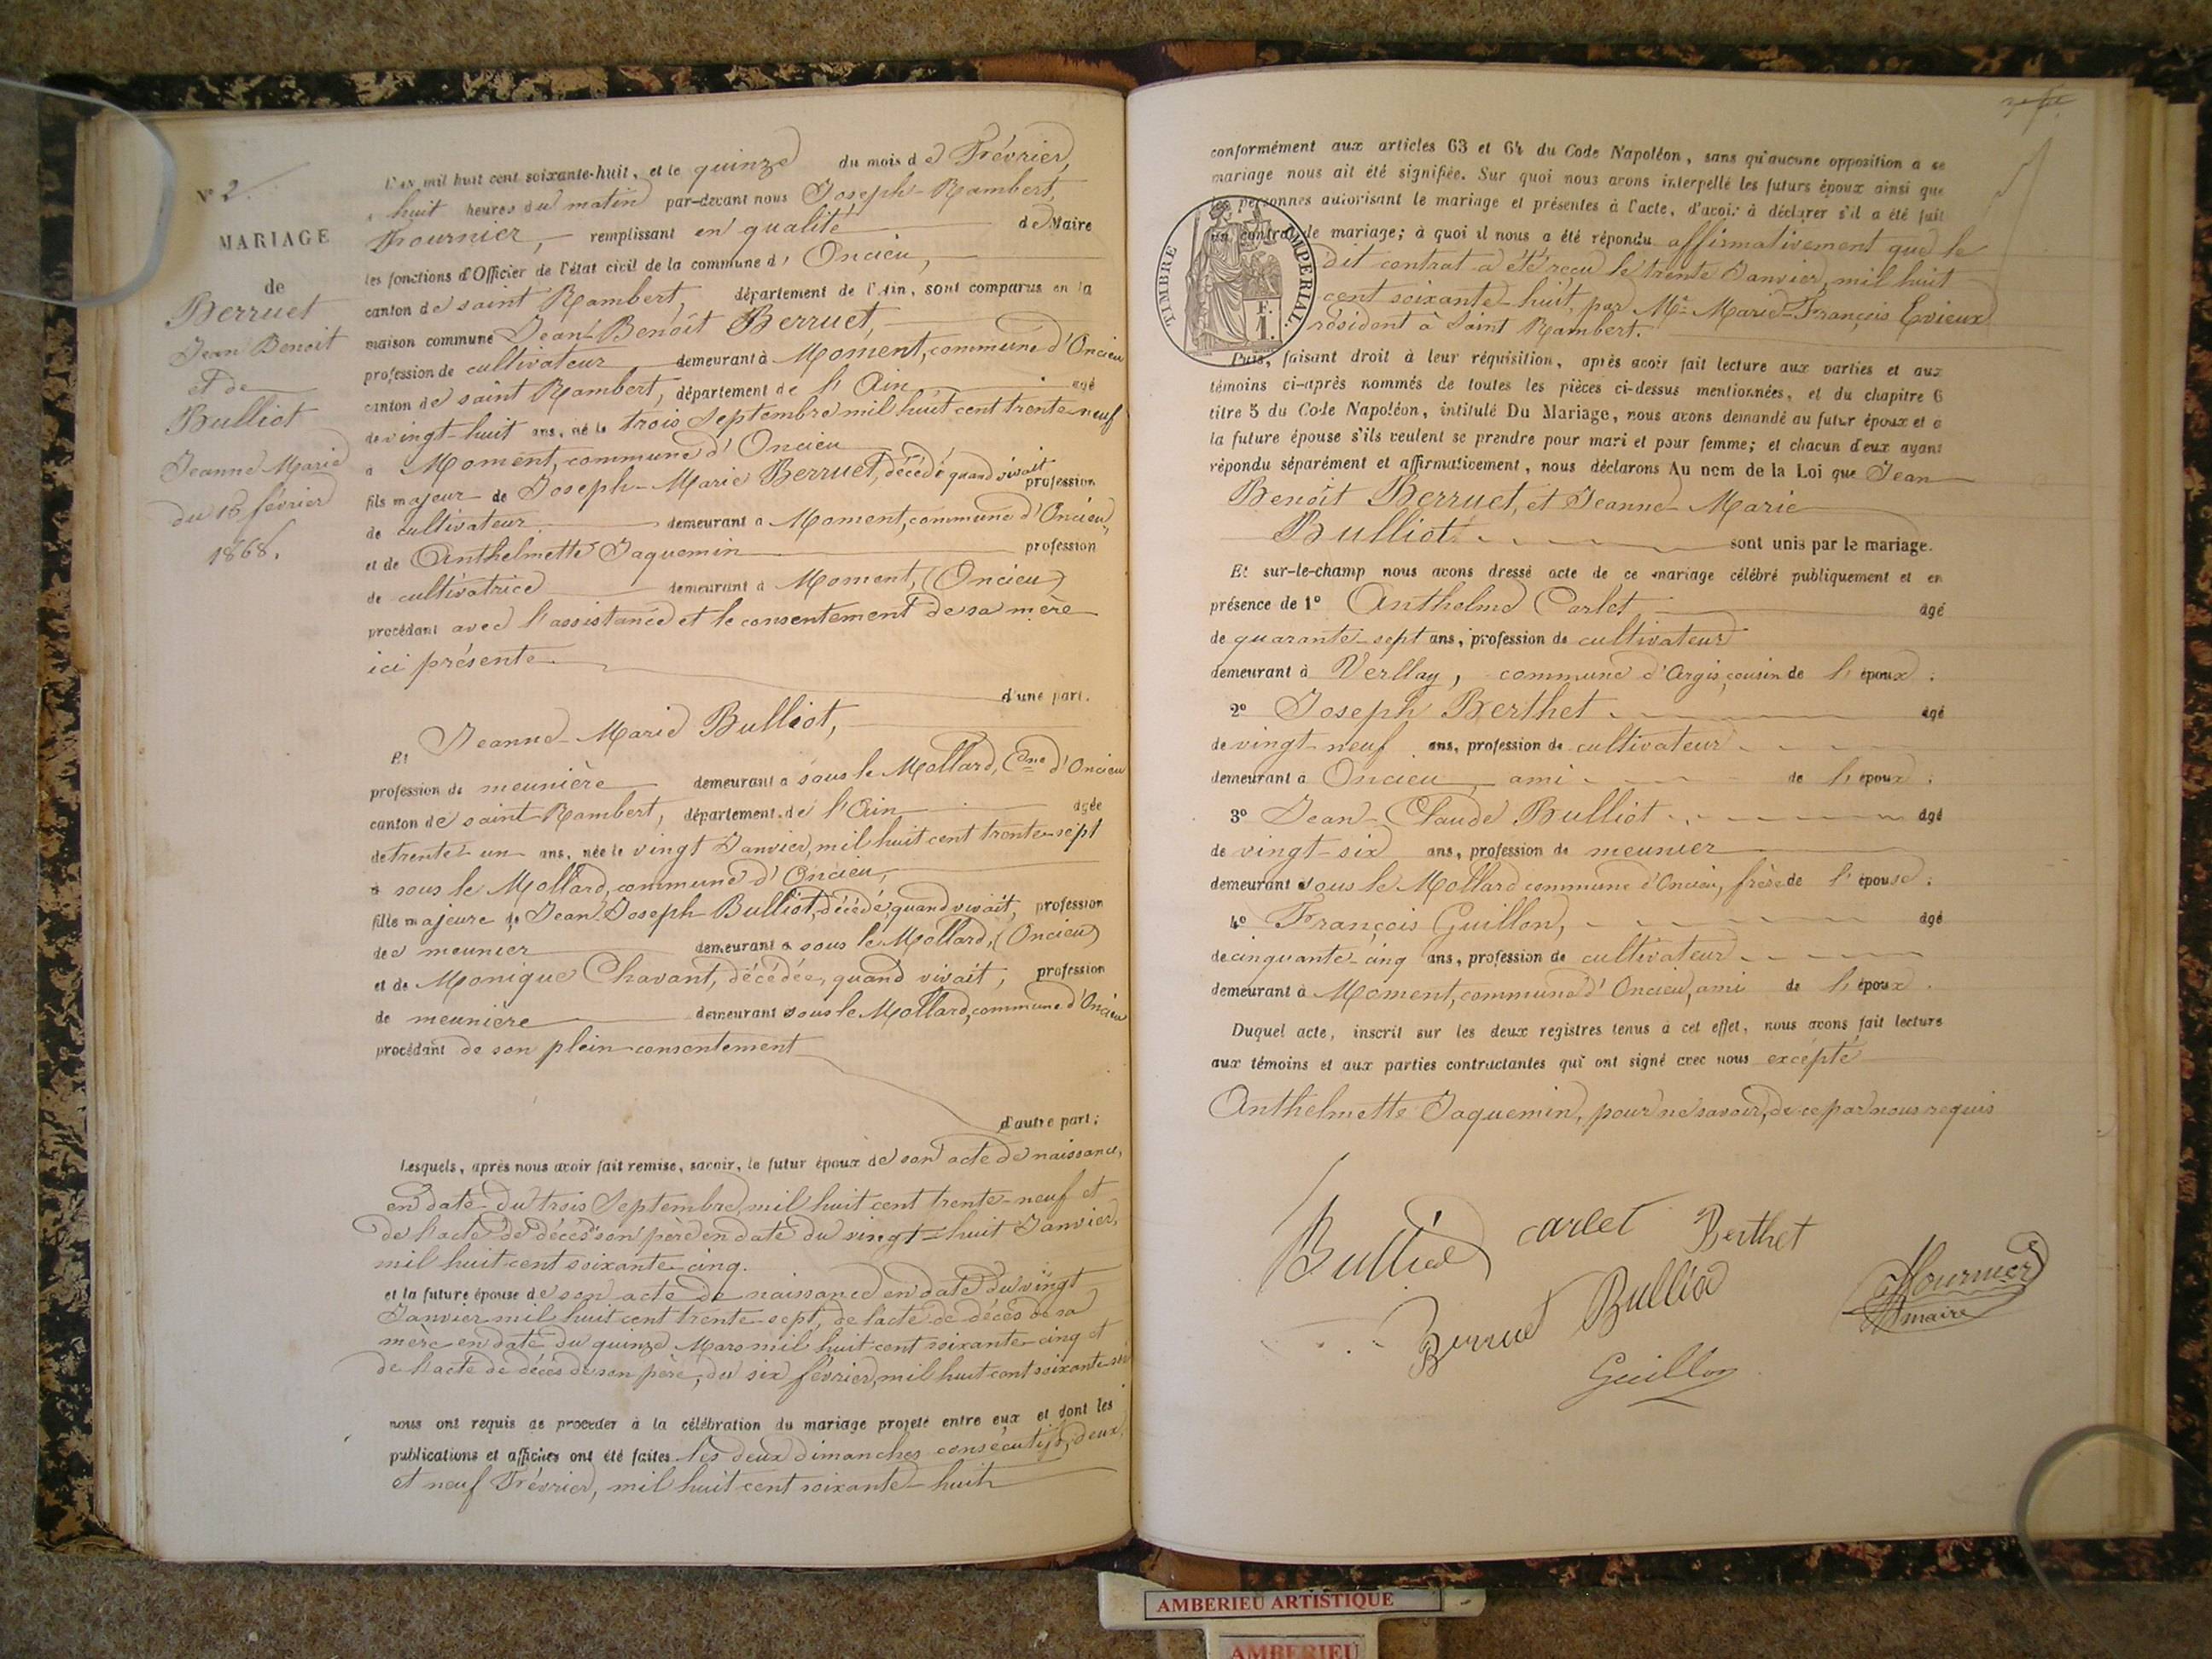 N° 2.
MARIAGE
de
Berruet
Jean Benoit
et de
Bulliot
Jeanne Marie
du 15 février
1868.
L'AN mil huit cent soixante-huit, et le quinze du mois de Février,
à huit heures du matin par-devant nous Joseph-Rambert,
Fournier, remplissant en qualité de Maire
les fonctions d'Officier de l'état civil de la commune d' Oncieu,
canton de saint Rambert, département de l'Ain, sont comparus en la
maison commune Jean-Benoît Berruet,
profession de cultivateur demeurant à Moment, commune d'Oncieu
canton de saint Rambert, département de l'Ain agé
de vingt-huit ans, né le trois Septembre mil huit cent trente neuf
à Moment, commune d'Oncieu
fils majeur de Joseph-Marie Berruet, décédé quand vivait profession
de cultivateur demeurant à Moment, commune d'Oncieu,
et de Anthelmette Jaquemin profession
de cultivatrice demeurant à Moment, (Oncieu)
procédant avec l'assistance et le consentement de sa mère
ici présente.
d'une part.
Et Jeanne-Marie Bulliot,
profession de meunière demeurant à sous le Mollard, Cne d'Oncieu
canton de saint-Rambert, département de l'Ain agée
de trente-un ans, née le vingt Janvier, mil huit cent trente-sept
à sous le Mollard, commune d'Oncieu,
fille majeure de Jean Joseph Bulliot, décédé, quand vivait, profession
de meunier demeurant à sous le Mollard, (Oncieu)
et de Monique Chavant, décédée, quand vivait, profession
de meunière demeurant sous le Mollard, commune d'Oncieu
procédant de son plein consentement
d'autre part;
Lesquels, après nous avoir fait remise, savoir, le futur époux de son acte de naissance,
en date du trois Septembre, mil huit cent trente-neuf et
de l'acte de décès son père en date du vingt-huit Janvier,
mil huit cent soixante cinq.
et la future épouse de son acte de naissance en date du vingt
Janvier mil huit cent trente-sept, de l'acte de décès de sa
mère en date du quinze Mars mil huit cent soixante cinq et
de l'acte de décès de son père, du six février, mil huit cent soixante six
nous ont requis de procéder à la célébration du mariage projeté entre eux et dont les
publications et affiches ont été faites les deux dimanches consécutifs, deux,
et neuf Février, mil huit cent soixante-huit
conformément aux articles 63 et 64 du Code Napoléon, sans qu'aucune opposition à ce
mariage nous ait été signifiée. Sur quoi nous avons interpellé les futurs époux ainsi que
les personnes autorisant le mariage et présentes à l'acte, d'avoir à déclarer s'il a été fait
un contrat de mariage; à quoi il nous a été répondu affirmativement que le
dit contrat a été reçu le trente Janvier, mil huit
cent soixante-huit, par Me Marie-François Evieux
résident à Saint Rambert.
TIMBRE IMPERIAL.
1 F.
Puis, faisant droit à leur réquisition, après avoir fait lecture aux parties et aux
témoins ci-après nommés de toutes les pièces ci-dessus mentionnées, et du chapitre 6
titre 5 du Code Napoléon, intitulé Du Mariage, nous avons demandé au futur époux et à
la future épouse s'ils veulent se prendre pour mari et pour femme; et chacun d'eux ayant
répondu séparément et affirmativement, nous déclarons Au nom de la Loi que Jean
Benoît Berruet, et Jeanne-Marie
Bulliot sont unis par le mariage.
Et sur-le-champ nous avons dressé acte de ce mariage célébré publiquement et en
présence de 1° Anthelme Carlet agé
de quarante-sept ans, profession de cultivateur
demeurant à Verllay, commune d'Argis, cousin de l'époux.
2° Joseph Berthet agé
de vingt-neuf ans, profession de cultivateur
demeurant à Oncieu, ami de l'époux;
3° Jean-Claude Bulliot agé
de vingt-six ans, profession de meunier
demeurant sous le Mollard commune d'Oncieu, frère de l'épouse;
4° François Guillon, agé
de cinquante-cinq ans, profession de cultivateur
demeurant à Moment, commune d'Oncieu, ami de l'époux.
Duquel acte, inscrit sur les deux registres tenus à cet effet, nous avons fait lecture
aux témoins et aux parties contractantes qui ont signé avec nous excepté
Anthelmette Jaquemin, pour ne savoir, de ce par nous requis
Bulliot carlet Berthet
Berruet Bulliot Fournier
maire
Guillon
AMBERIEU ARTISTIQUE
AMBERIEU